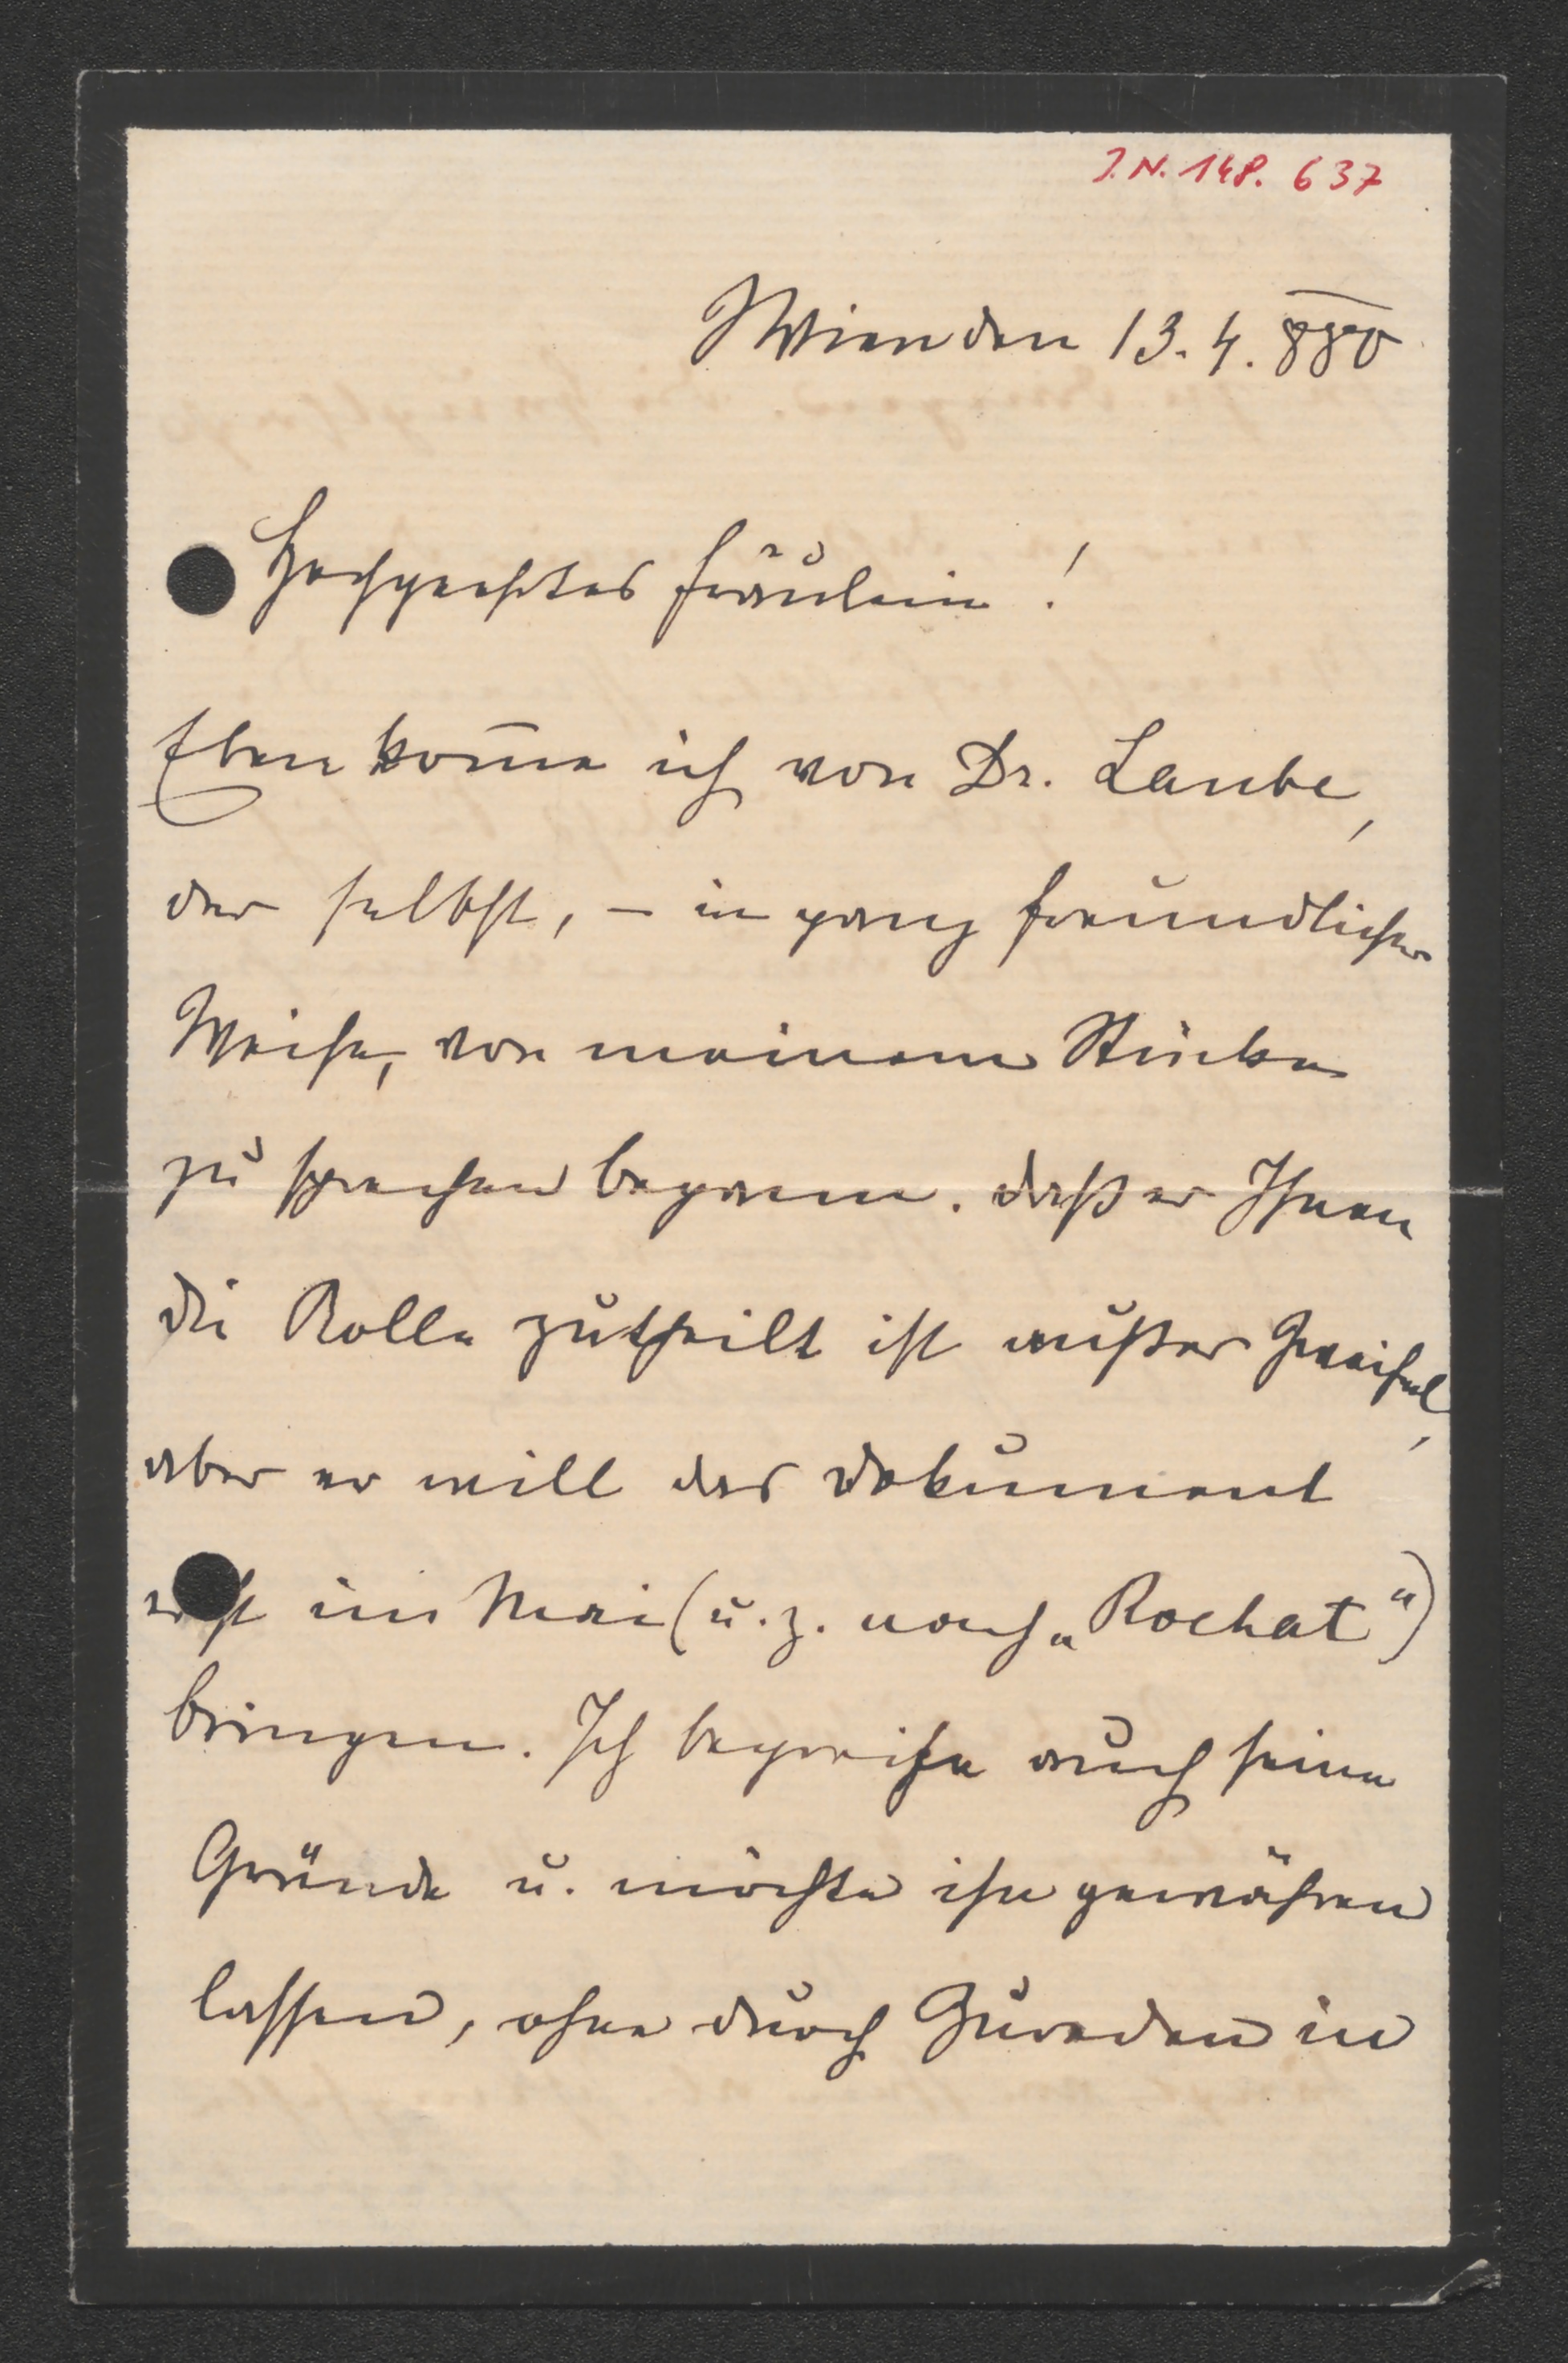 J.N. 148.637
Wien den 13. 4. 880
Hochgeehrtes Fräulein!
Eben kom̅e ich von Dr. Laube,
der selbst, – in ganz freundlicher
Weise, von meinem Stücke
zu sprechen begann. Daß er Ihnen
die Rolle zutheilt ist außer Zweifel,
aber er will das Dokument
erst im Mai (u. z. nach „Rochat")
bringen. Ich begreife auch seine
Gründe u. möchte ihn gewähren
lassen, ohne durch Zureden in